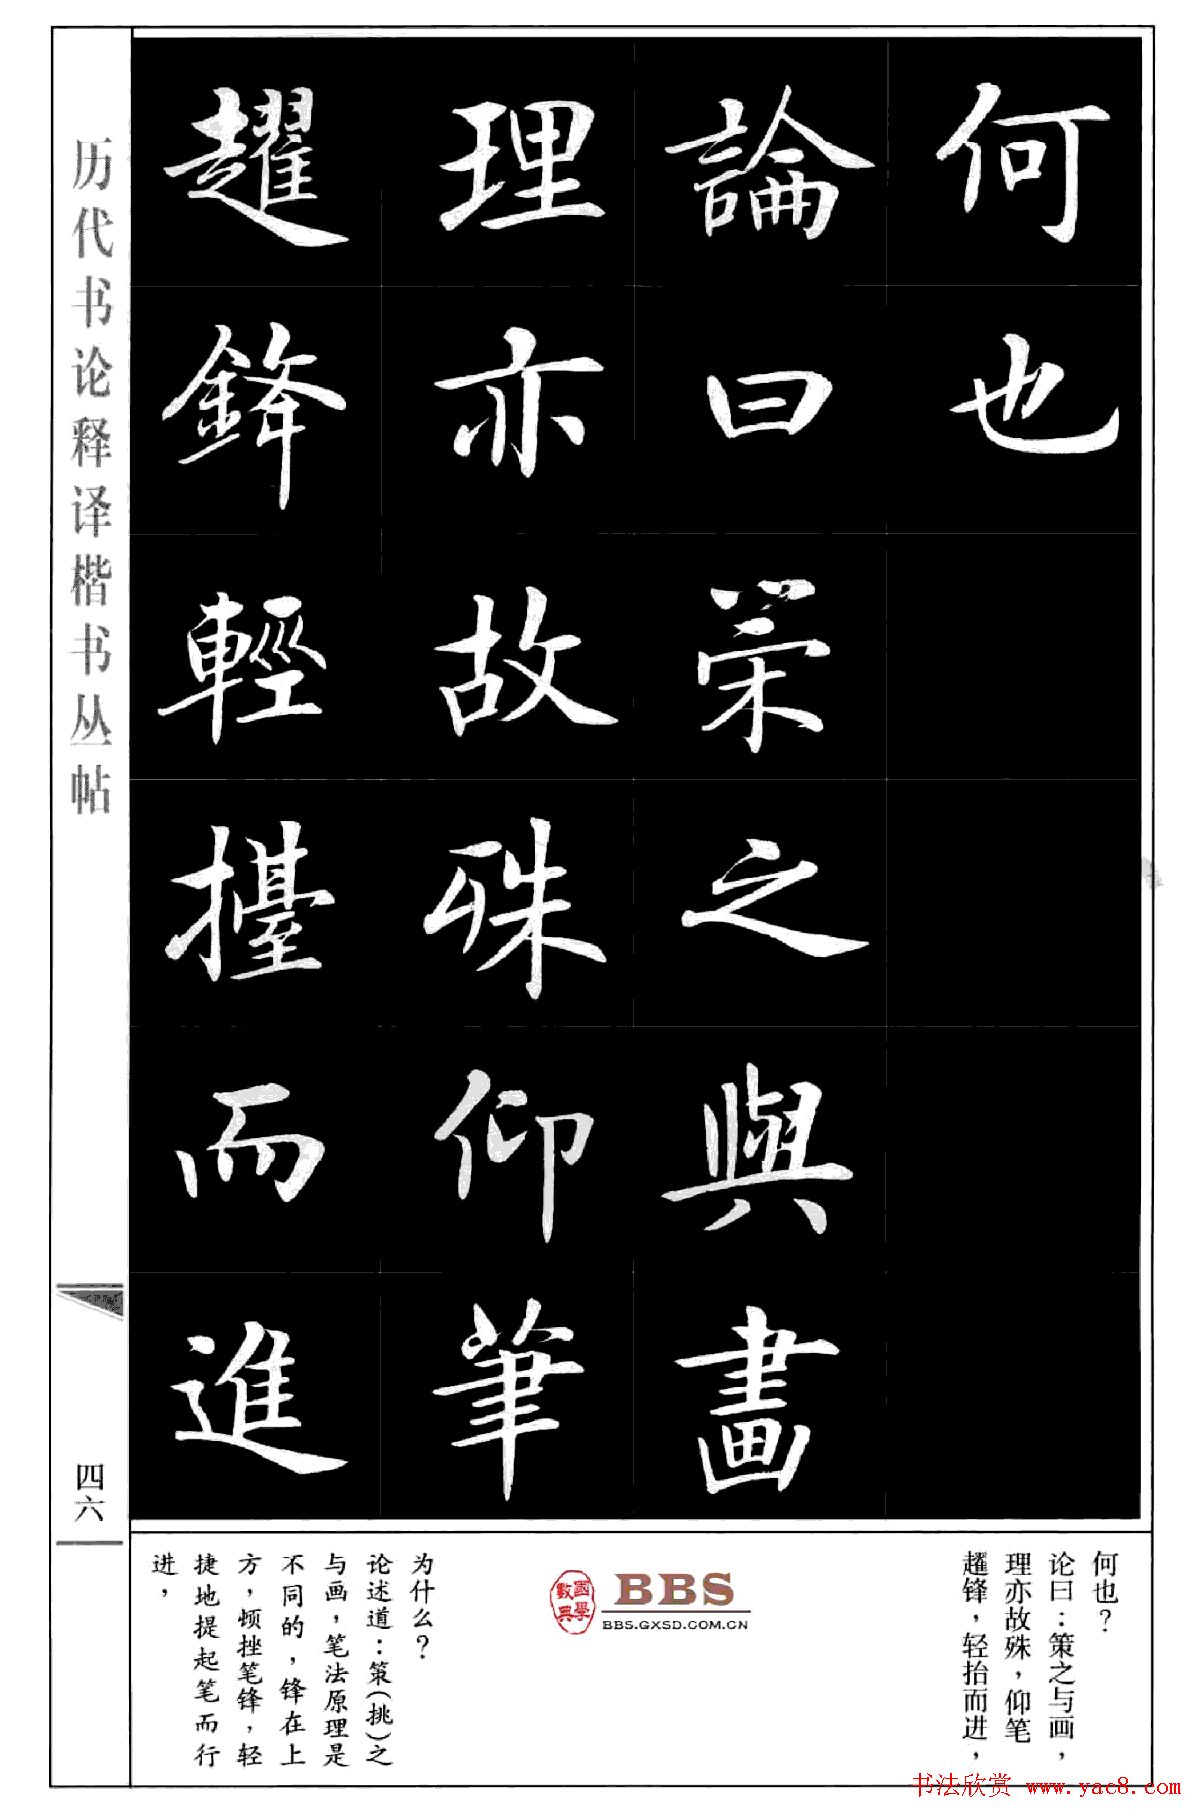 何也
論曰策之與畫
理亦故殊仰筆
趯鋒輕擡而進
历代书论释译楷书丛帖
四六
何也？
论曰：策之与画，
理亦故殊，仰笔
趯锋，轻抬而进，
國學數典
BBS
BBS.GXSD.COM.CN
为什么？
论述道：策（挑）之
与画，笔法原理是
不同的，锋在上
方，顿挫笔锋，轻
捷地提起笔而行
进，
书法欣赏 www.yac8.com